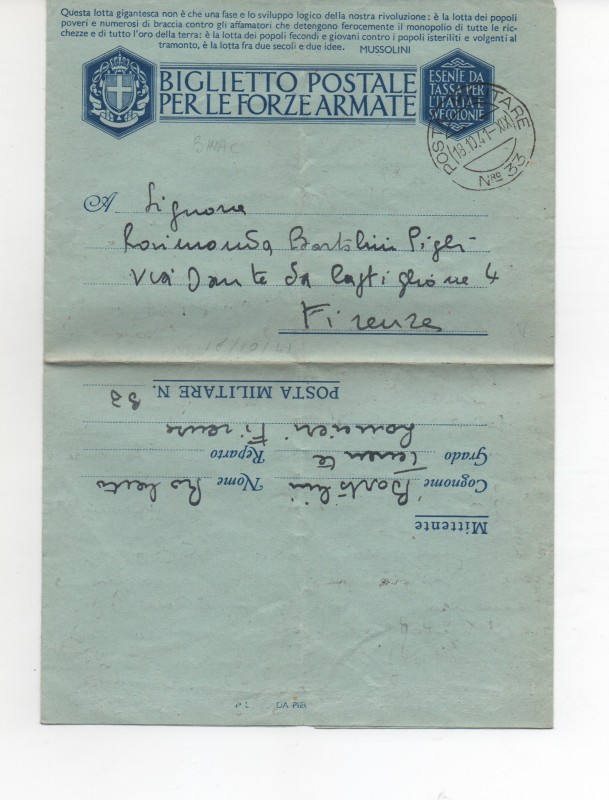 Questa lotta gigantesca non è che una fase e lo sviluppo logico della nostra rivoluzione: è la lotta dei popoli
poveri e numerosi di braccia contro gli affamatori che detengono ferocemente il monopolio di tutte le ric-
chezze e di tutto l'oro della terra: è la lotta dei popoli fecondi e giovani contro i popoli isteriliti e volgenti al
tramonto, è la lotta fra due secoli e due idee. MUSSOLINI
BIGLIETTO POSTALE
PER LE FORZE ARMATE
ESENTE DA
TASSA PER
L'ITALIA
SUE COLONIE
POSTA MILITARE
18.10.41-XIX
Nro 33
A Signora
Rosimonda Bartolini Pigli
Via Dante da Castiglione 4
Firenze
18/10/41
POSTA MILITARE N. 33
Lancieri Firenze
Grado Tenente Reparto
Cognome Bartolini Nome Roberto
Mittente